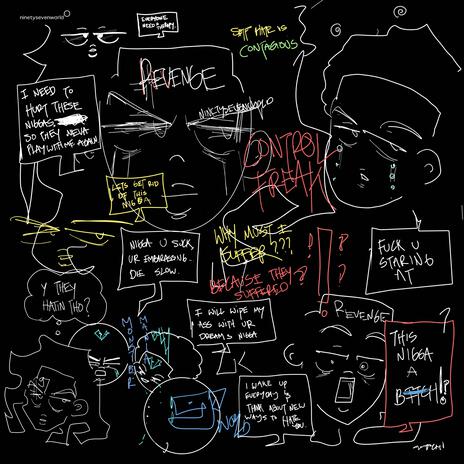 ninetysevenworld
EVERYONE
NEED THERAPY.
SELF HATE IS
CONTAGIOUS
REVENGE
I NEED TO
HURT THESE
NIGGAS,
SO THEY NEVA
PLAY WITH ME AGAIN
NINETYSEVENWORLD
CONTROL
FREAK
LETS GET RID
OF THIS
NIGGA
NIGGA U SUCK,
UR EMBARASSING.
DIE SLOW.
WHY MUST I
SUFFER???
BECAUSE THEY
SUFFERED
!
?
?
FUCK U
STARING
AT
Y THEY
HATIN THO?
I WILL WIPE MY
ASS WITH UR
DREAMS NIGGA
REVENGE
THIS
NIGGA
A
BITCH!?
I WAKE UP
EVERYDAY &
THINK ABOUT NEW
WAYS TO HATE
YOU.